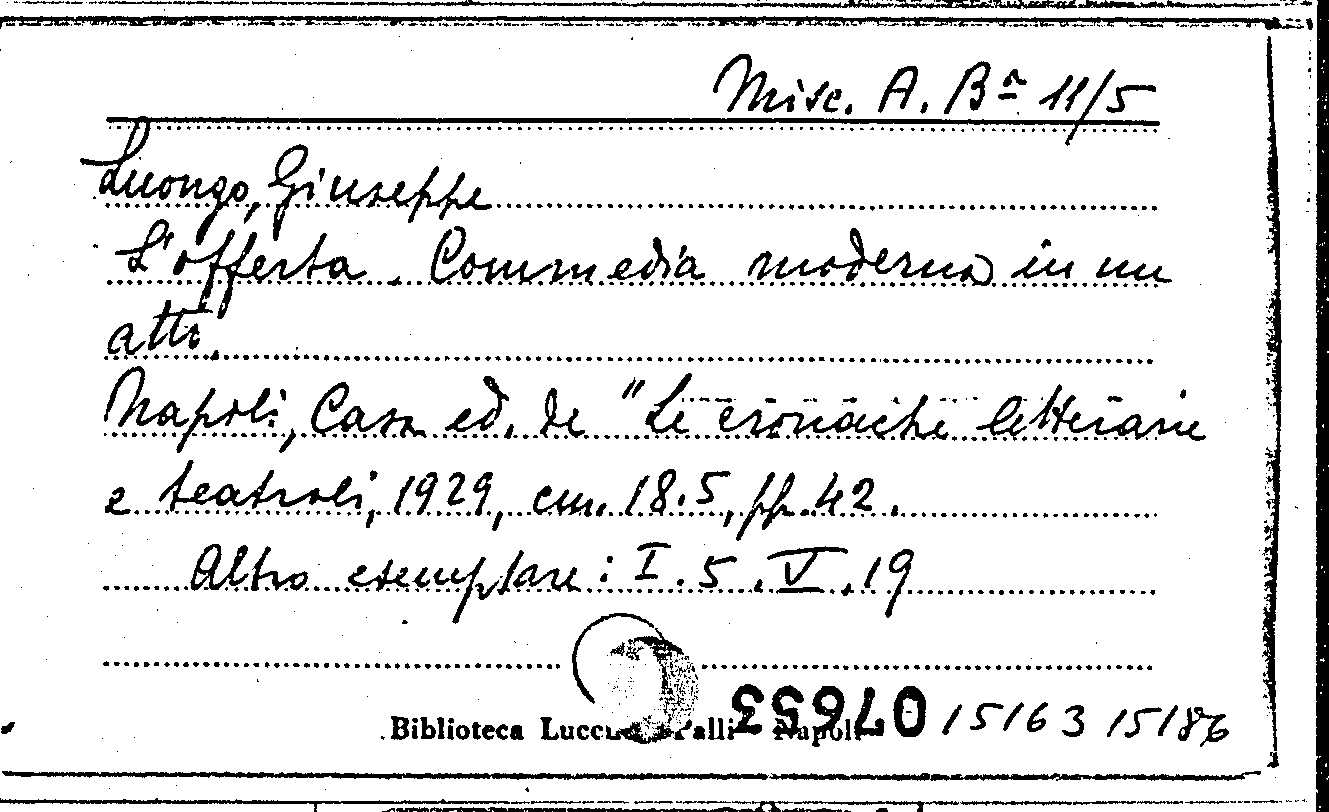 Misc. A. Bª 11/5
Luongo, Giuseppe
L'offerta. Commedia moderna in un
atto.
Napoli, Casa ed. de "Le cronache letterarie
e teatrali, 1929, cm. 18.5, pp. 42.
Altro esemplare: I.5.V.19
Biblioteca Lucc Palli - Napoli
15163 15186